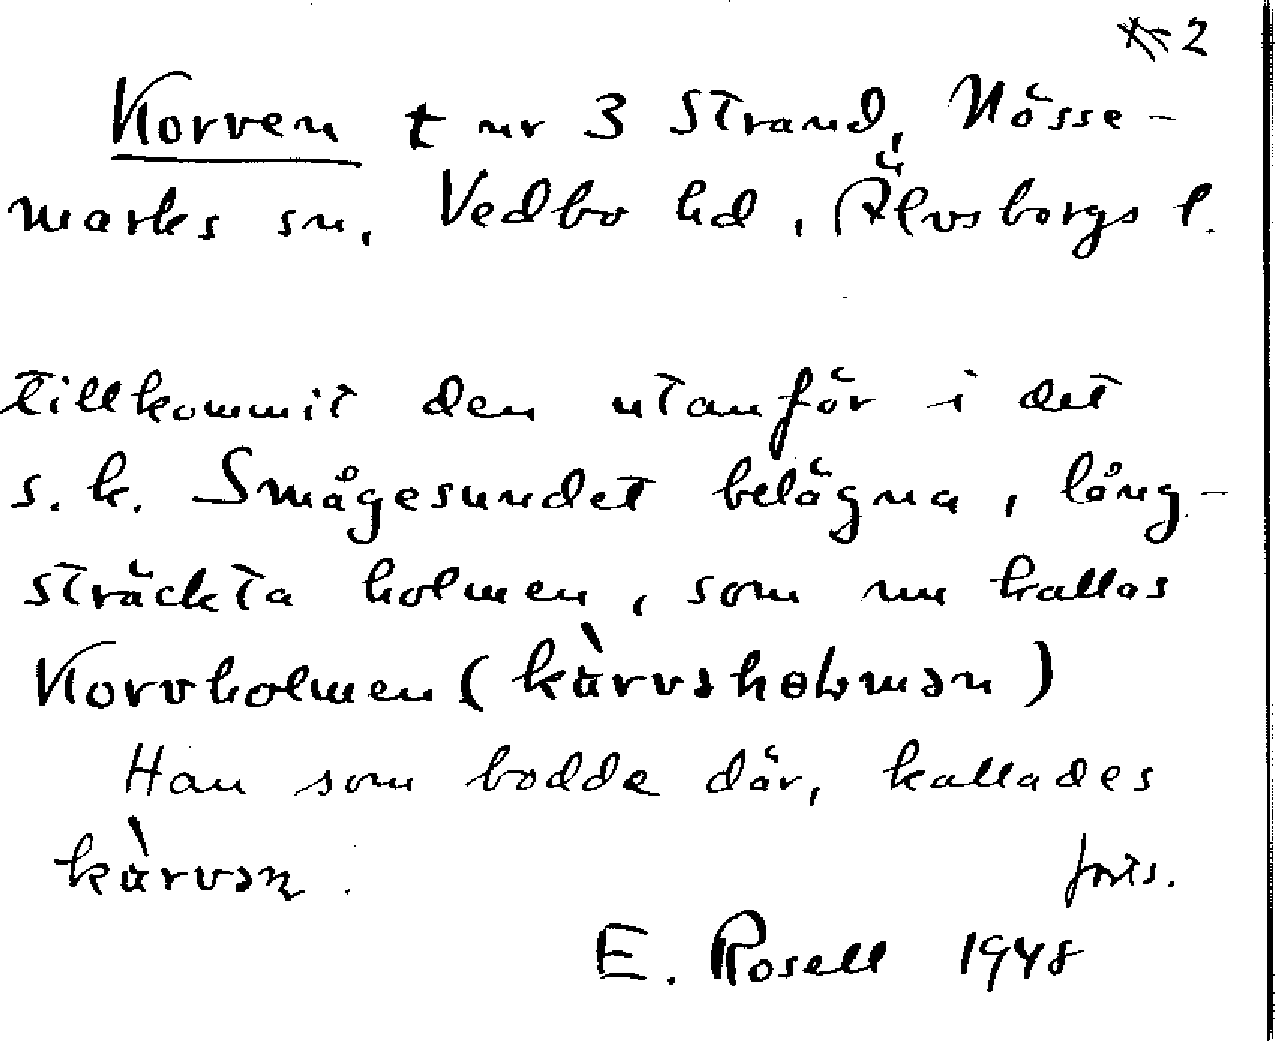 2
Korven t nr 3 Strand, Nösse-
marks sn, Vedbo hd, Älvsborgs l.
tillkommit den utanför i det
s. k. Smågesundet belägna, lång-
sträckta holmen, som nu kallas
Korvholmen (kàrvsholmən)
Han som bodde där, kallades
kàrvən. forts.
E. Rosell 1948